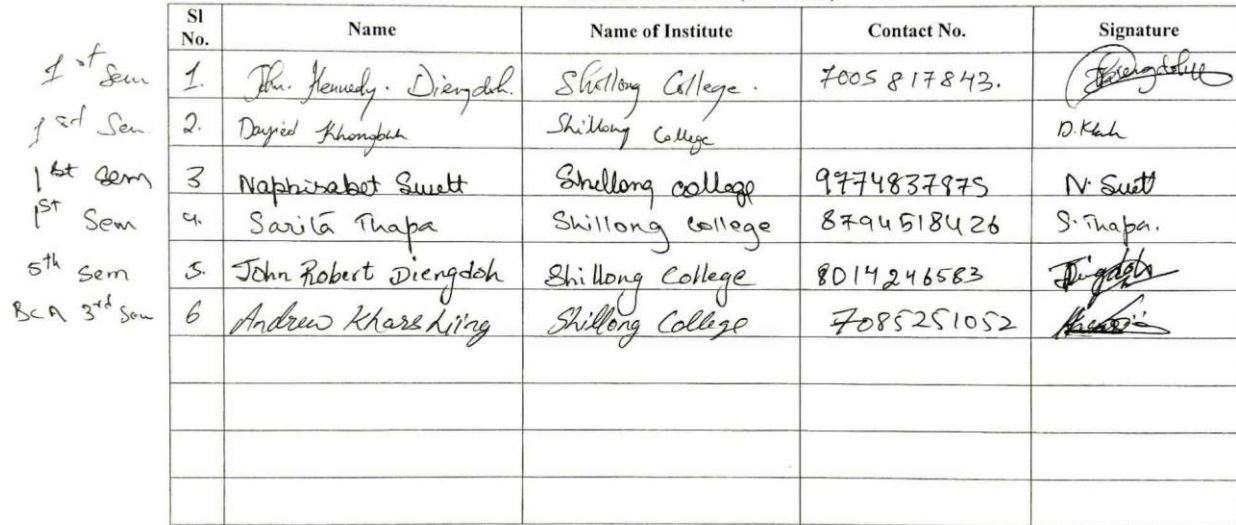 Sl No. Name Name of Institute Contact No. Signature
1st Sem 1. Jhn. Kennedy. Diengdoh. Shillong College. 7005817843.
Sem. 2. Khongbuh Shillong College D. Kbuh
1st Sem 3 Naphisabet Swett Shillong college 9774837975 N. Suett
1st Sem 4. Sarita Thapa Shillong College 8794518426 S. Thapa.
5th Sem 5. John Robert Diengdoh Shillong College 8014246583 Diengdoh
BCA 3rd Sem 6 Andrew Kharshiing Shillong College 7085251052